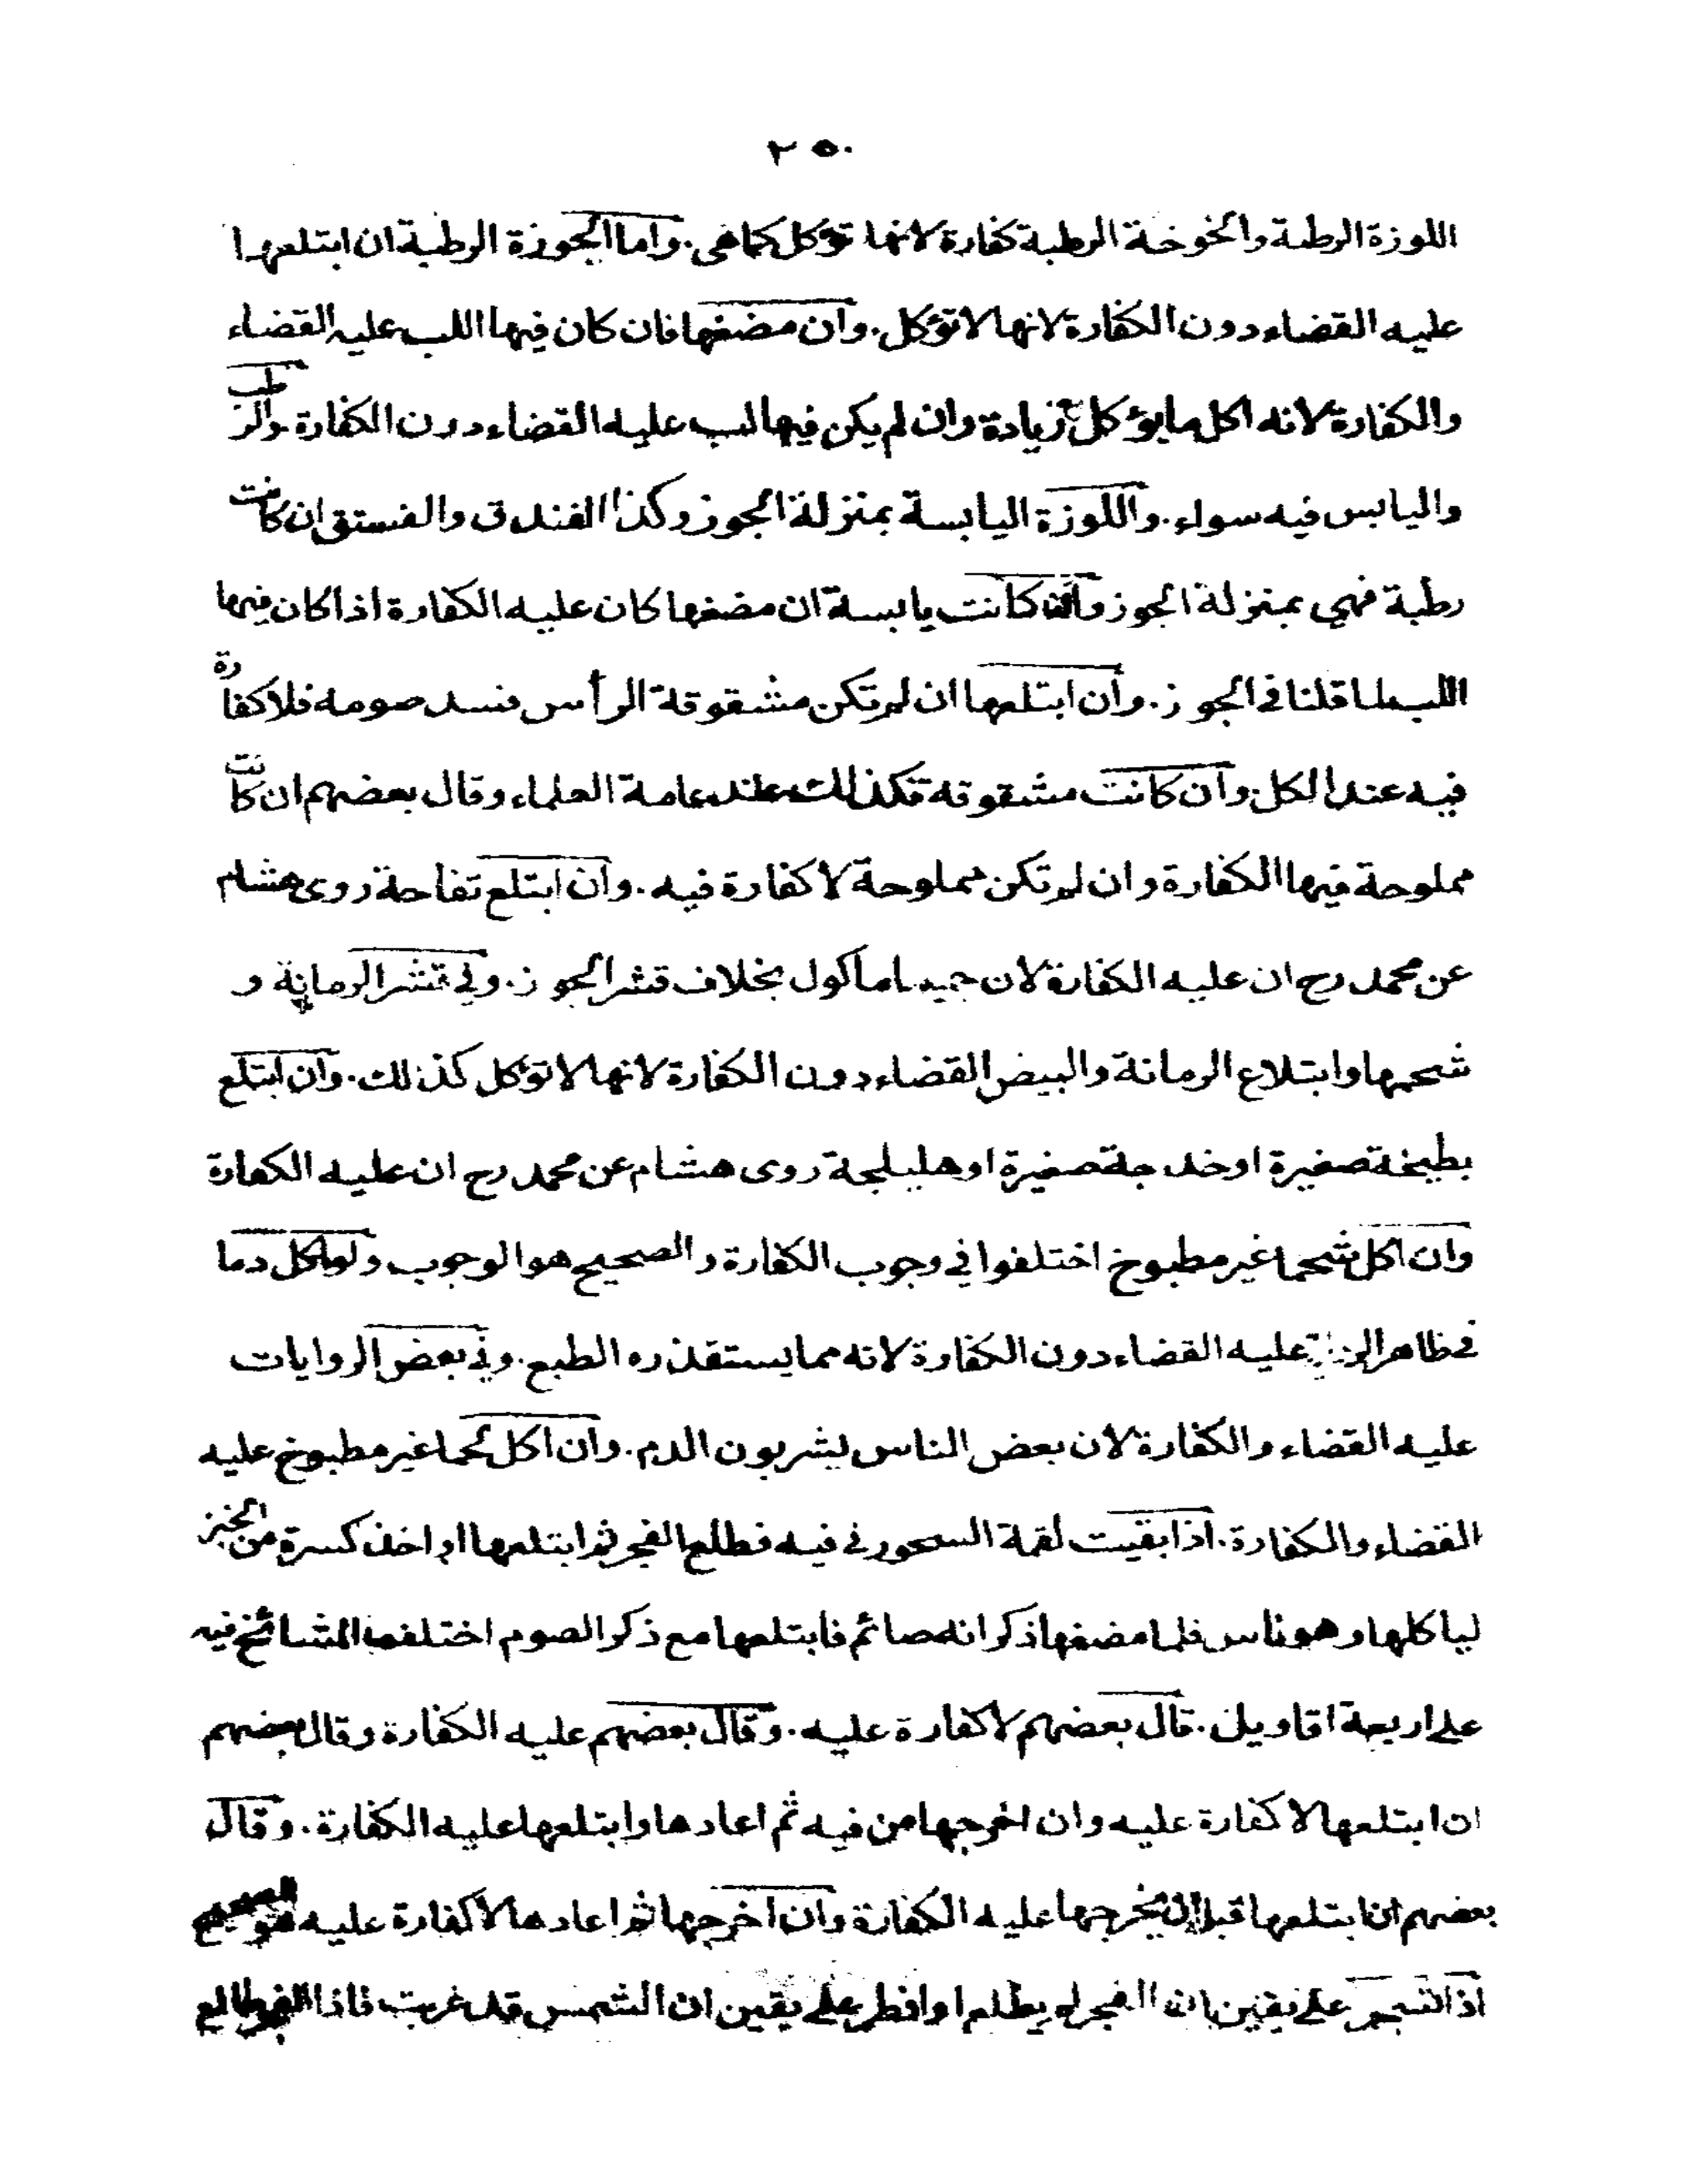 ٢٥٠
اللوزة الرطبة والخوخة الرطبة كفارة لانها توكل كماهى. واما الجوزة الرطبة ان ابتلعها
عليه القضاء دون الكفارة لانها لا توكل. وان مضغها فان كان فيها اللب عليه القضاء
والكفارة لانه اكل ما يؤكل زيادة وان لم يكن فيها لب عليه القضاء دون الكفارة والرطب
واليابس فيه سواء. واللوزة اليابسة بمنزلة الجوز وكذا الفندق والفستق ان كانت
رطبة فهي بمنزلة الجوز وان كانت يابسة ان مضغها كان عليه الكفارة اذا كان فيها
اللب لما قلنا في الجوز. وان ابتلعها ان لم تكن مشقوقة الرأس فسد صومه فلا كفارة
فيه عند الكل. وان كانت مشقوقة فكذلك عند عامة العلماء وقال بعضهم ان كانت
مملوحة فيها الكفارة وان لم تكن مملوحة لا كفارة فيه. وان ابتلع تفاحة روى هشام
عن محمد رح ان عليه الكفارة لان جميعها ماكول بخلاف قشر الجوز. وفي قشر الرمانة و
شحمها وابتلاع الرمانة والبيض القضاء دون الكفارة لانها لا توكل كذلك. وان ابتلع
بطيخة صغيرة او خدجة صغيرة او هليلجة روى هشام عن محمد رح ان عليه الكفارة
وان اكل شحما غير مطبوخ اختلفوا في وجوب الكفارة والصحيح هو الوجوب ولو اكل دما
في ظاهر الرواية عليه القضاء دون الكفارة لانه مما يستقذره الطبع. وفي بعض الروايات
عليه القضاء والكفارة لان بعض الناس يشربون الدم. وان اكل لحما غير مطبوخ عليه
القضاء والكفارة. اذا بقيت لقمة السحور في فيه فطلع الفجر ثم ابتلعها او اخذ كسرة من الخبز
لياكلها وهو ناس فلما مضغها ذكر انه صائم فابتلعها مع ذكر الصوم اختلف المشائخ فيه
على اربعة اقاويل. قال بعضهم لا كفارة عليه. وقال بعضهم عليه الكفارة وقال بعضهم
ان ابتلعها لا كفارة عليه وان اخرجها من فيه ثم اعادها وابتلعها عليه الكفارة. وقال
بعضهم ان ابتلعها قبل ان يخرجها عليه الكفارة وان اخرجها ثم اعادها لا كفارة عليه هو الصحيح
اذا تسحر على يقين ان الفجر لم يطلع او افطر على يقين ان الشمس قد غربت فاذا الفجر طالع